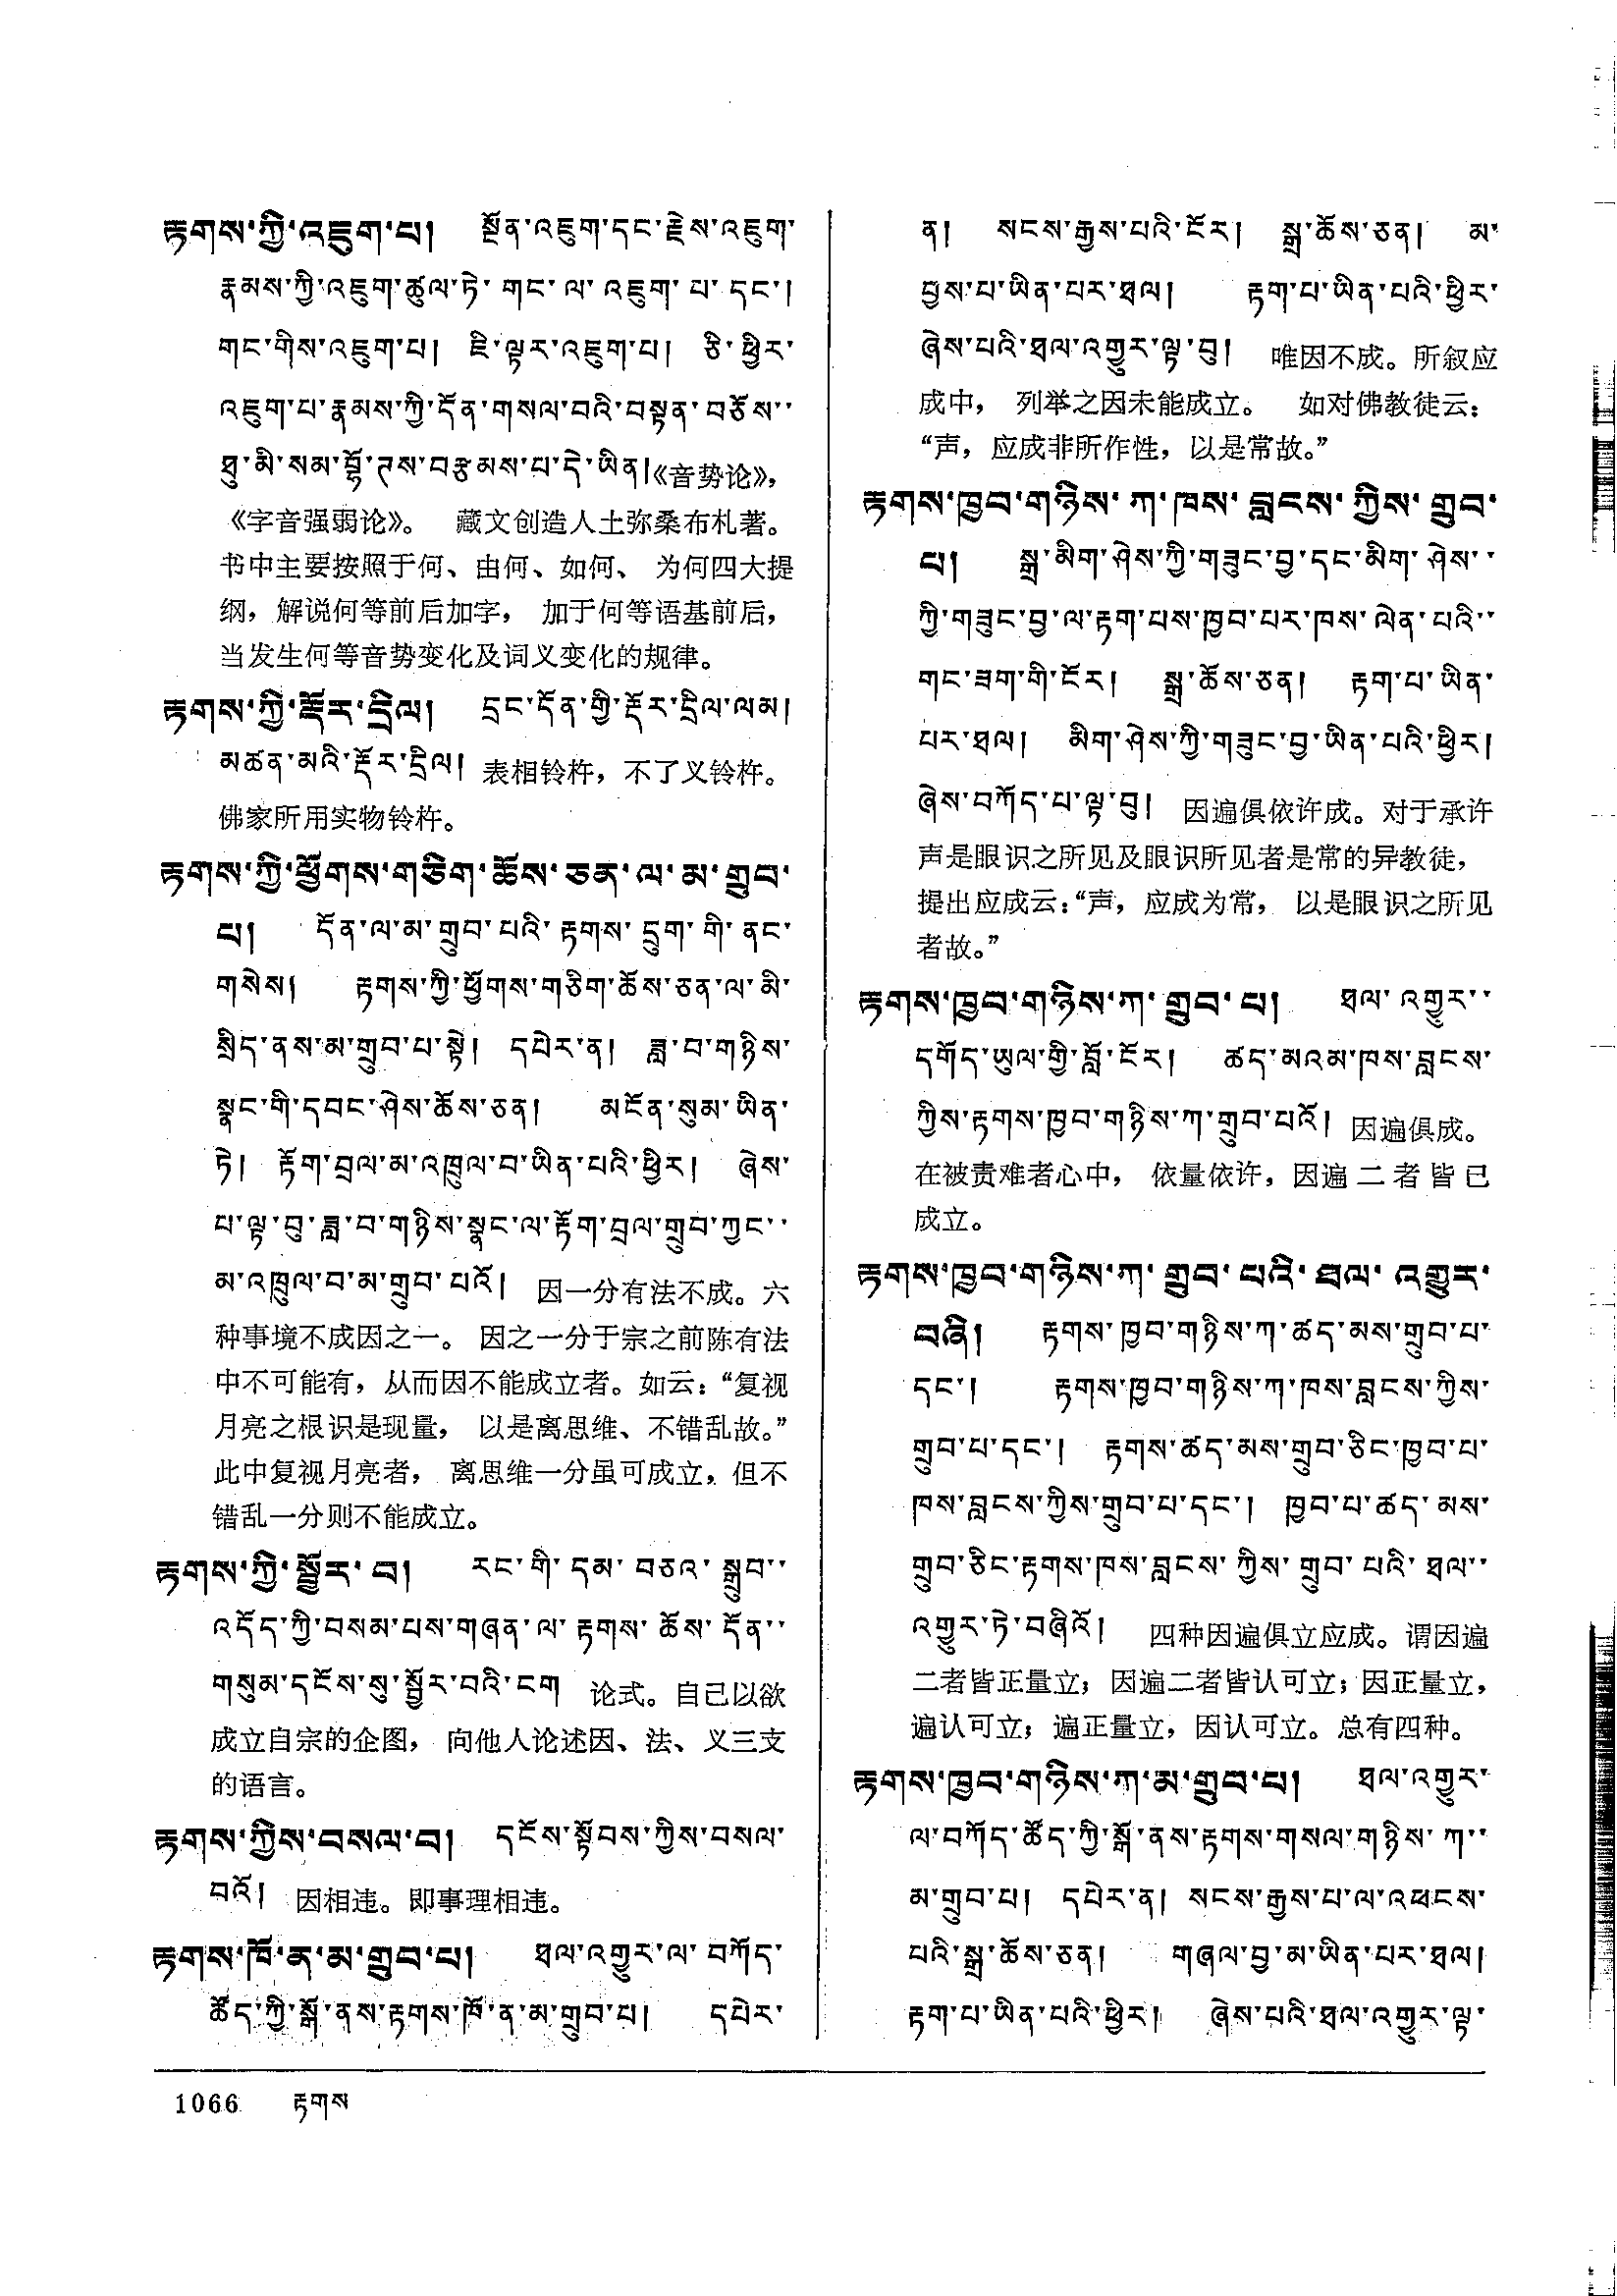 རྟགས་ཀྱི་འཇུག་པ། སྔོན་འཇུག་དང་རྗེས་འཇུག་
རྣམས་ཀྱི་འཇུག་ཚུལ་ཏེ་ གང་ལ་འཇུག་པ་དང་།
གང་གིས་འཇུག་པ། ཇི་ལྟར་འཇུག་པ། ཅི་ཕྱིར་
འཇུག་པ་རྣམས་ཀྱི་དོན་གསལ་བའི་བསྟན་བཅོས་་
ཐུ་མི་སམ་བྷོ་ཊས་བརྩམས་པ་དེ་ཡིན།《音势论》，
《字音强弱论》。 藏文创造人土弥桑布札著。
书中主要按照于何、由何、如何、 为何四大提
纲，解说何等前后加字， 加于何等语基前后，
当发生何等音势变化及词义变化的规律。
རྟགས་ཀྱི་རྡོར་དྲིལ། དྲང་དོན་གྱི་རྡོར་དྲིལ་ལམ།
མཚན་མའི་རྡོར་དྲིལ། 表相铃杵，不了义铃杵。
佛家所用实物铃杵。
རྟགས་ཀྱི་ཕྱོགས་གཅིག་ཆོས་ཅན་ལ་མ་གྲུབ་
པ། དོན་ལ་མ་གྲུབ་པའི་རྟགས་དྲུག་གི་ནང་
གསེས། རྟགས་ཀྱི་ཕྱོགས་གཅིག་ཆོས་ཅན་ལ་མི་
སྲིད་ནས་མ་གྲུབ་པ་སྟེ། དཔེར་ན། ཟླ་བ་གཉིས་
སྣང་གི་དབང་ཤེས་ཆོས་ཅན། མངོན་སུམ་ཡིན་
ཏེ། རྟོག་བྲལ་མ་འཁྲུལ་བ་ཡིན་པའི་ཕྱིར། ཞེས་
པ་ལྟ་བུ་ཟླ་བ་གཉིས་སྣང་ལ་རྟོག་བྲལ་གྲུབ་ཀྱང་་
མ་འཁྲུལ་བ་མ་གྲུབ་པའོ། 因一分有法不成。六
种事境不成因之一。 因之一分于宗之前陈有法
中不可能有，从而因不能成立者。如云：“复视
月亮之根识是现量， 以是离思维、不错乱故。”
此中复视月亮者， 离思维一分虽可成立，但不
错乱一分则不能成立。
རྟགས་ཀྱི་སྦྱོར་བ། རང་གི་དམ་བཅའ་སྒྲུབ་་
འདོད་ཀྱི་བསམ་པས་གཞན་ལ་རྟགས་ཆོས་དོན་་
གསུམ་དངོས་སུ་སྦྱོར་བའི་ངག 论式。自己以欲
成立自宗的企图， 向他人论述因、法、义三支
的语言。
རྟགས་ཀྱིས་བསལ་བ། དངོས་སྟོབས་ཀྱིས་བསལ་
བའོ། 因相违。即事理相违。
རྟགས་ཁོ་ན་མ་གྲུབ་པ། ཐལ་འགྱུར་ལ་བཀོད་
ཚོད་ཀྱི་སྒོ་ནས་རྟགས་ཁོ་ན་མ་གྲུབ་པ། དཔེར་
ན། སངས་རྒྱས་པའི་ངོར། སྒྲ་ཆོས་ཅན། མ་
བྱས་པ་ཡིན་པར་ཐལ། རྟག་པ་ཡིན་པའི་ཕྱིར་
ཞེས་པའི་ཐལ་འགྱུར་ལྟ་བུ། 唯因不成。所叙应
成中， 列举之因未能成立。 如对佛教徒云：
“声，应成非所作性，以是常故。”
རྟགས་ཁྱབ་གཉིས་ཀ་ཁས་བླངས་ཀྱིས་གྲུབ་
པ། སྒྲ་མིག་ཤེས་ཀྱི་གཟུང་བྱ་དང་མིག་ཤེས་་
ཀྱི་གཟུང་བྱ་ལ་རྟག་པས་ཁྱབ་པར་ཁས་ལེན་པའི་་
གང་ཟག་གི་ངོར། སྒྲ་ཆོས་ཅན། རྟག་པ་ཡིན་
པར་ཐལ། མིག་ཤེས་ཀྱི་གཟུང་བྱ་ཡིན་པའི་ཕྱིར།
ཞེས་བཀོད་པ་ལྟ་བུ། 因遍俱依许成。对于承许
声是眼识之所见及眼识所见者是常的异教徒，
提出应成云：“声，应成为常， 以是眼识之所见
者故。”
རྟགས་ཁྱབ་གཉིས་ཀ་གྲུབ་པ། ཐལ་འགྱུར་་
དགོད་ཡུལ་གྱི་བློ་ངོར། ཚད་མའམ་ཁས་བླངས་
ཀྱིས་རྟགས་ཁྱབ་གཉིས་ཀ་གྲུབ་པའོ། 因遍俱成。
在被责难者心中， 依量依许，因遍二者皆已
成立。
རྟགས་ཁྱབ་གཉིས་ཀ་གྲུབ་པའི་ཐལ་འགྱུར་
བཞི། རྟགས་ཁྱབ་གཉིས་ཀ་ཚད་མས་གྲུབ་པ་
དང་། རྟགས་ཁྱབ་གཉིས་ཀ་ཁས་བླངས་ཀྱིས་
གྲུབ་པ་དང་། རྟགས་ཚད་མས་གྲུབ་ཅིང་ཁྱབ་པ་
ཁས་བླངས་ཀྱིས་གྲུབ་པ་དང་། ཁྱབ་པ་ཚད་མས་
གྲུབ་ཅིང་རྟགས་ཁས་བླངས་ཀྱིས་གྲུབ་པའི་ཐལ་་
འགྱུར་ཏེ་བཞིའོ། 四种因遍俱立应成。谓因遍
二者皆正量立；因遍二者皆认可立；因正量立，
遍认可立；遍正量立，因认可立。总有四种。
རྟགས་ཁྱབ་གཉིས་ཀ་མ་གྲུབ་པ། ཐལ་འགྱུར་
ལ་བཀོད་ཚོད་ཀྱི་སྒོ་ནས་རྟགས་གསལ་གཉིས་ཀ་་
མ་གྲུབ་པ། དཔེར་ན། སངས་རྒྱས་པ་ལ་འཕངས་
པའི་སྒྲ་ཆོས་ཅན། གཞལ་བྱ་མ་ཡིན་པར་ཐལ།
རྟག་པ་ཡིན་པའི་ཕྱིར། ཞེས་པའི་ཐལ་འགྱུར་ལྟ་
1066 རྟགས